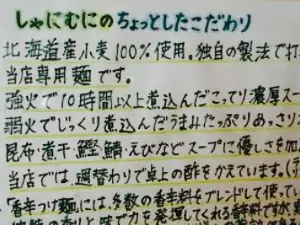 しゃにむにのちょっとしたこだわり
北海道産小麦100%使用。独自の製法で打
当店専用麺です。
強火で10時間以上煮込んだこってり濃厚スー
弱火でじっくり煮込んだうまみたっぷりあっさりス
昆布・煮干・鰹・鯖・えびなどスープに優しさを加
当店では、週替わりで卓上の酢をかえています。(す
「香辛つけ麺」には、多数の香辛料をブレンドして使ってい
の香りと味で力を発揮してくれる香辛料ですが